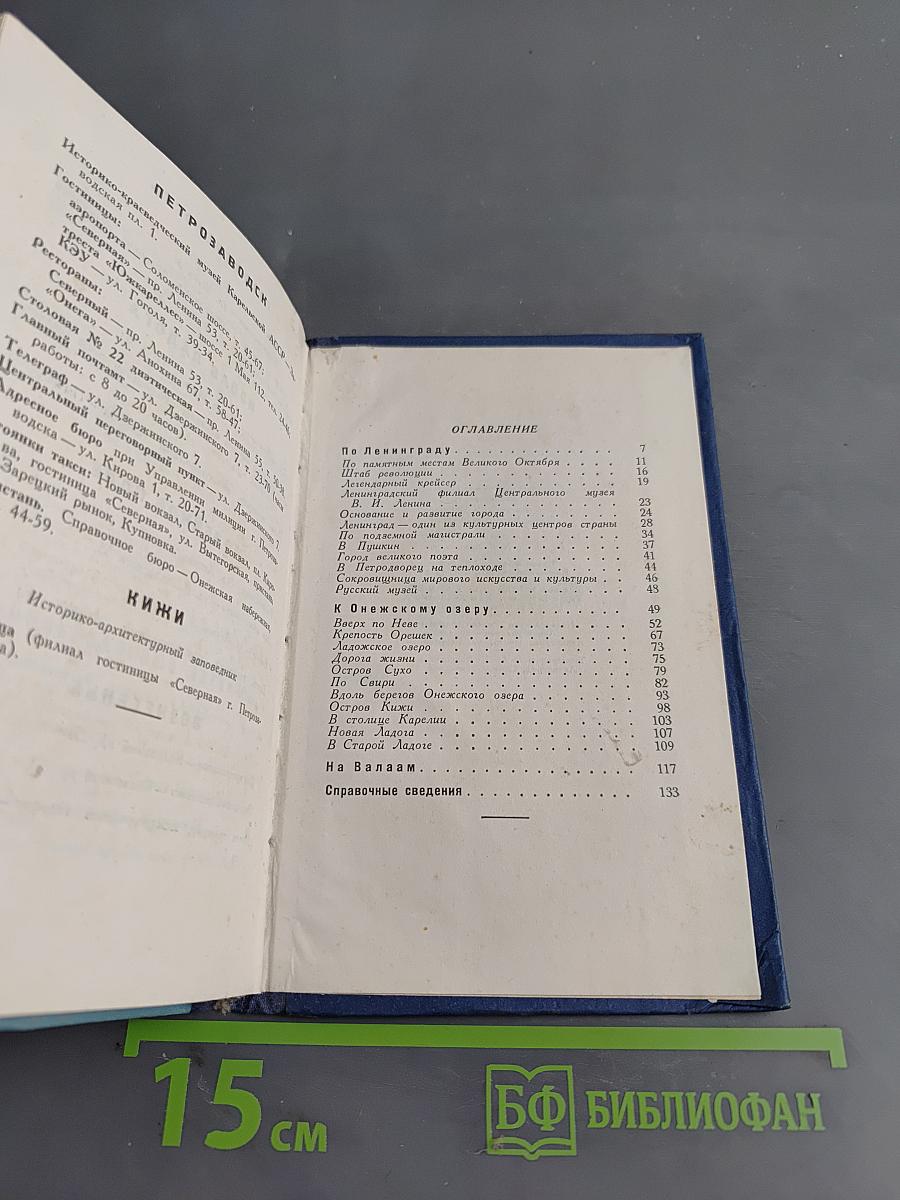 ПЕТРОЗАВОДСК
Историко-краеведческий музей Карельской АССР
водская пл. 1.
Гостиницы:
аэропорта — Соломенское шоссе, т. 45-67;
«Северная» — пр. Ленина 53, т. 20-61;
треста «Южкареллес» — шоссе 1 Мая 112, тел. 24-46.
КЭУ — ул. Гоголя, т. 39-34.
Рестораны:
Северный — пр. Ленина 53, т. 20-61;
«Онега» — ул. Анохина 67, т. 58-47;
Столовая № 22 диэтическая — пр. Ленина 55, т. 50-34
Главный почтамт — ул. Дзержинского 7, т. 23-70 (часы
работы: с 8 до 20 часов).
Телеграф — ул. Дзержинского 7.
Центральный переговорный пункт — ул. Дзержинского 7.
Адресное бюро при Управлении милиции г. Петроза-
водска — ул. Кирова 1, т. 20-71.
такси: Новый вокзал, Старый вокзал, пл.
ва, гостиница «Северная», ул. Вытегорская, пристань,
Зарецкий рынок, Купловка.
Справочное бюро — Онежская набережная,
44-59.
КИЖИ
Историко-архитектурный заповедник
(филиал гостиницы «Северная» г. Петроза-
ОГЛАВЛЕНИЕ
По Ленинграду 7
По памятным местам Великого Октября 11
Штаб революции 16
Легендарный крейсер 19
Ленинградский филиал Центрального музея
В. И. Ленина 23
Основание и развитие города 24
Ленинград — один из культурных центров страны 28
По подземной магистрали 34
В Пушкин 37
Город великого поэта 41
В Петродворец на теплоходе 44
Сокровищница мирового искусства и культуры 46
Русский музей 48
К Онежскому озеру 49
Вверх по Неве 52
Крепость Орешек 67
Ладожское озеро 73
Дорога жизни 75
Остров Сухо 79
По Свири 82
Вдоль берегов Онежского озера 93
Остров Кижи 98
В столице Карелии 103
Новая Ладога 107
В Старой Ладоге 109
На Валаам 117
Справочные сведения 133
15 см
БФ БИБЛИОФАН